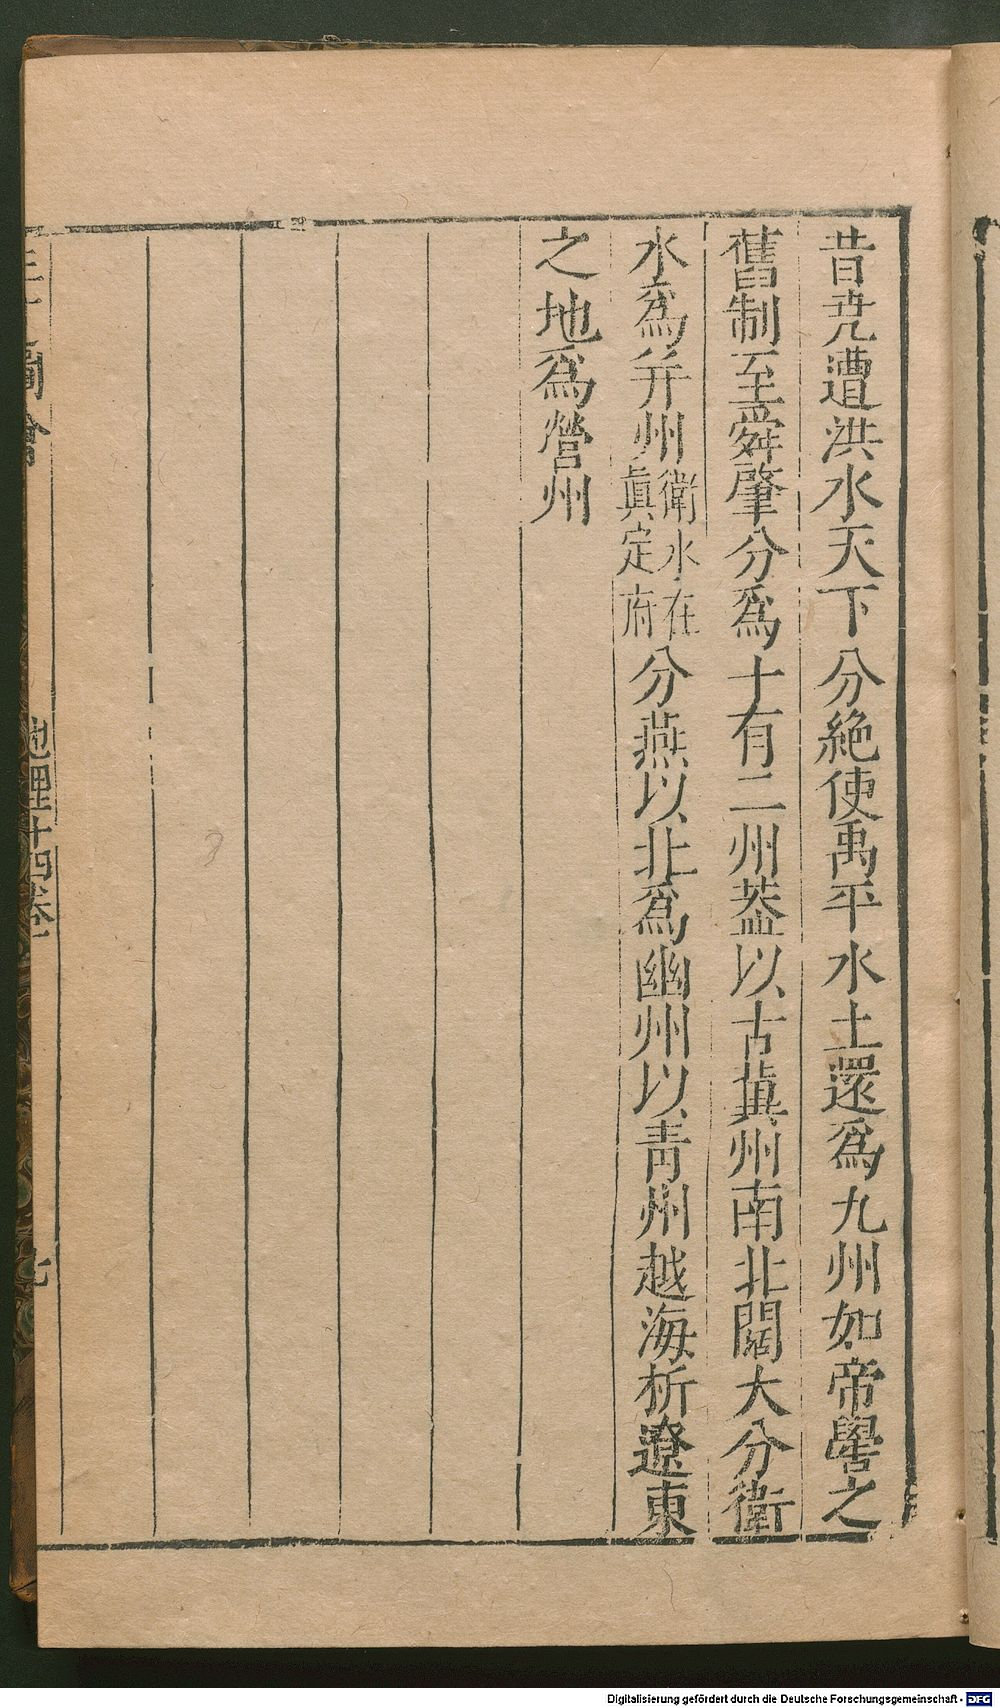 昔尭遭洪水天下分絶使禹平水土還爲九州如帝嚳之
舊制至舜肇分爲十有二州葢以古冀州南北闊大分衛
水爲并州衛水在真定府分燕以北爲幽州以青州越海析遼東
之地爲營州
地理十四卷
七
Digitalisierung gefördert durch die Deutsche Forschungsgemeinschaft - DFG